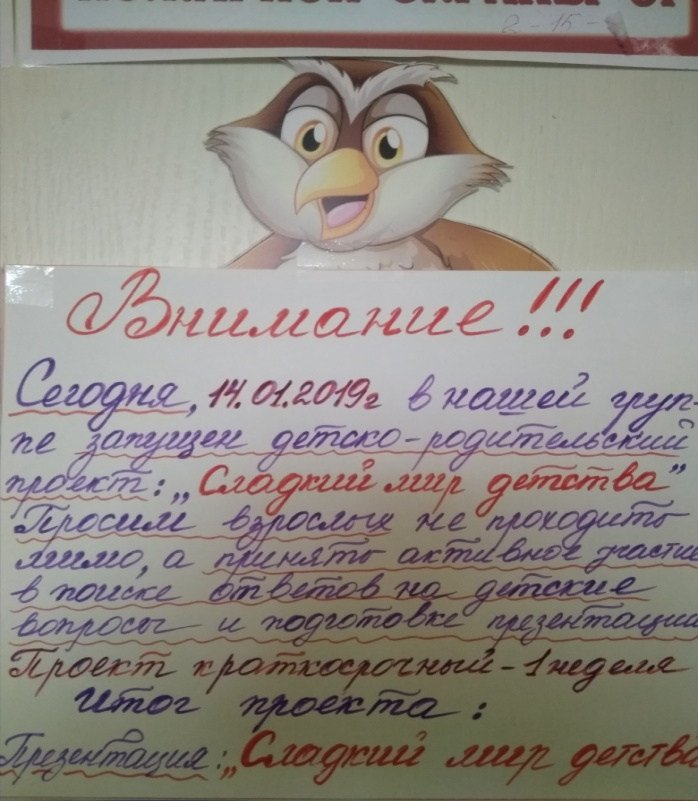 2-15-
Внимание!!!
Сегодня, 14.01.2019г в нашей груп-
пе запущен детско-родительский
проект: „Сладкий мир детства”
Просим взрослых не проходить
мимо, а принять активное участие
в поиске ответов на детские
вопросы и подготовке презентации
Проект краткосрочный - 1 неделя
Итог проекта:
Презентация: „Сладкий мир детств